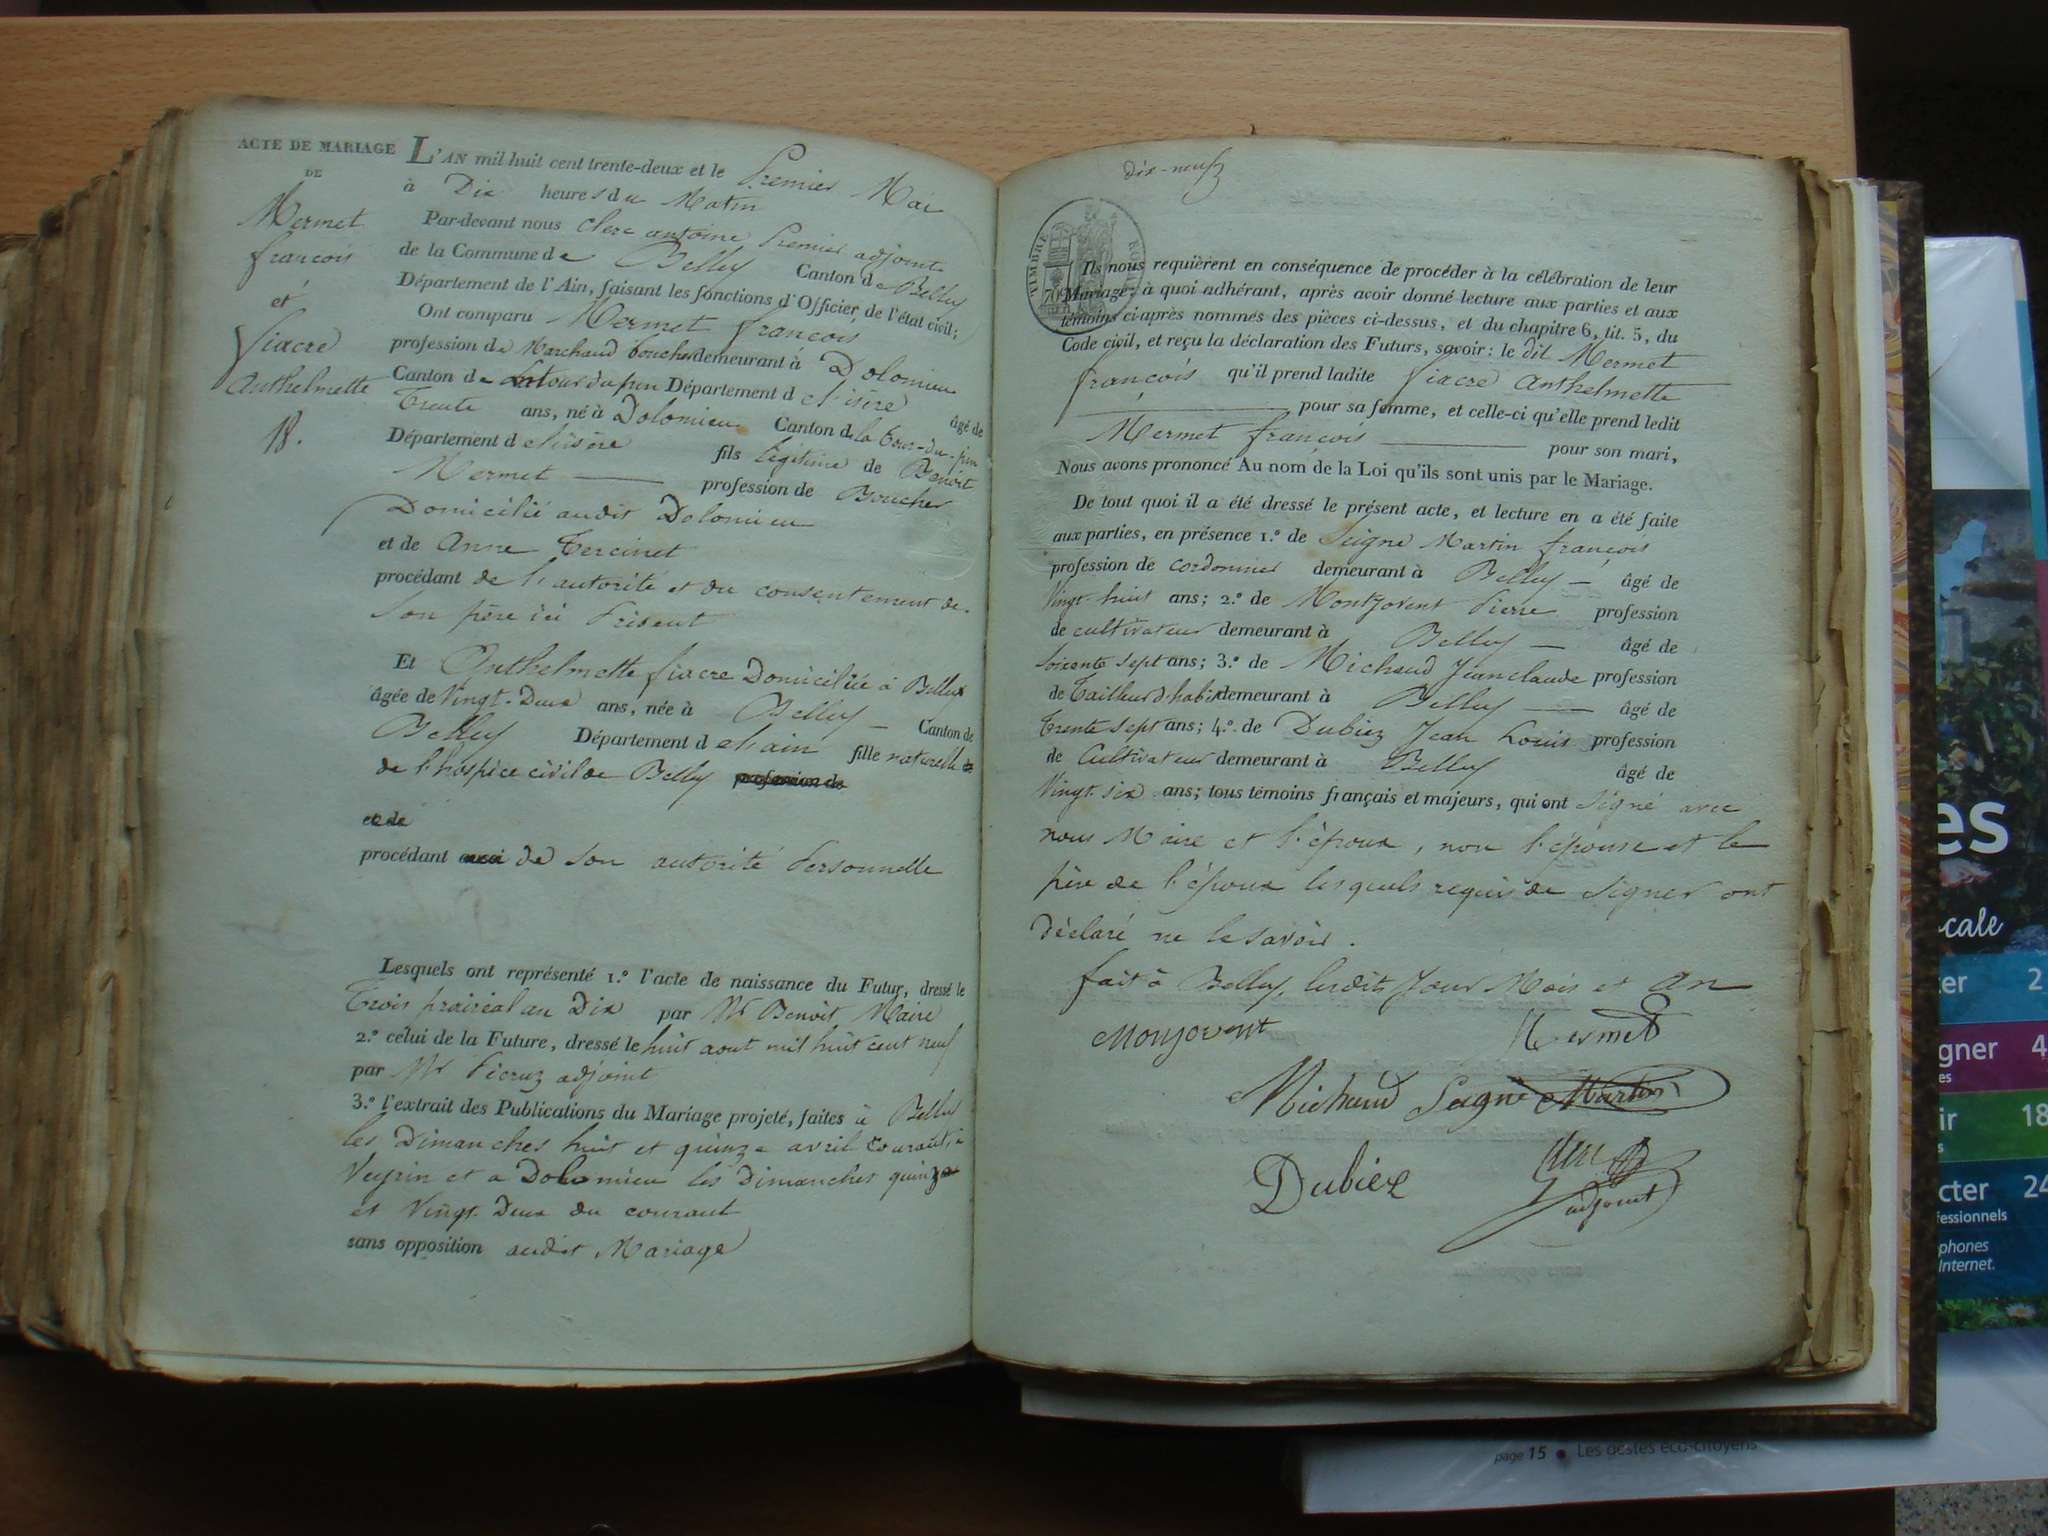 ACTE DE MARIAGE
DE
Mermet
françois
et
fiacre
Anthelmette
18.
L'AN mil huit cent trente-deux et le Premier Mai
à Dix heures du Matin
Par-devant nous Clerc antoine Premier adjoint
de la Commune de Belley Canton de Belley
Département de l'Ain, faisant les fonctions d'Officier de l'état civil;
Ont comparu Mermet françois
profession de Marchand boucher demeurant à Dolomieu
Canton de Latour du pin Département de l'isère
âgé de
trente ans, né à Dolomieu Canton de la tour-du-pin
Département de l'isère fils légitime de Benoit
Mermet profession de Boucher
Domicilié audit Dolomieu
et de Anne Tercinet
procédant de l'autorité et du consentement de
Son père ici Présent
Et Anthelmette fiacre Domiciliée à Belley
âgée de Vingt-Deux ans, née à Belley Canton de
Belley Département de l'ain fille naturelle
de l'hospice civil de Belley profession de
et de
procédant de Son autorité Personnelle
Lesquels ont représenté 1.º l'acte de naissance du Futur, dressé le
trois prairéal an Dix par Mr Benoit Maire
2.º celui de la Future, dressé le huit aout mil huit cent neuf
par Mr Picruz adjoint
3.º l'extrait des Publications du Mariage projeté, faites à Belley
les Dimanches huit et quinze avril Courant, à
Veyrin et a Dolomieu les dimanches quinze
et Vingt Deux du courant
sans opposition audit Mariage
dix-neuf
TIMBRE ROYAL
70
Ils nous requièrent en conséquence de procéder à la célébration de leur
Mariage; à quoi adhérant, après avoir donné lecture aux parties et aux
témoins ci-après nommés des pièces ci-dessus, et du chapitre 6, tit. 5, du
Code civil, et reçu la déclaration des Futurs, savoir: le dit Mermet
françois qu'il prend ladite fiacre Anthelmette
pour sa femme, et celle-ci qu'elle prend ledit
Mermet françois pour son mari,
Nous avons prononcé Au nom de la Loi qu'ils sont unis par le Mariage.
De tout quoi il a été dressé le présent acte, et lecture en a été faite
aux parties, en présence 1.º de Seigne Martin françois
profession de cordonnier demeurant à Belley âgé de
Vingt huit ans; 2.º de Montjovent Pierre profession
de cultivateur demeurant à Belley âgé de
soixante sept ans; 3.º de Michaud Jean claude profession
de Tailleur d'habis demeurant à Belley âgé de
trente sept ans; 4.º de Dubiez Jean Louis profession
de Cultivateur demeurant à Belley âgé de
Vingt six ans; tous témoins français et majeurs, qui ont signé avec
nous Maire et l'époux, non l'épouse et le
père de l'époux lesquels requis de Signer ont
déclaré ne le savoir.
fait à Belley, lesdits Jour Mois et An
Monjovent
Mermet
Michaud Seigne Martin
Dubiez
Clerc
adjoint
es
cale
ter 2
gner 4
es
ir 18
s
cter 24
fessionnels
phones
Internet.
page 15 • Les gestes éco-citoyens